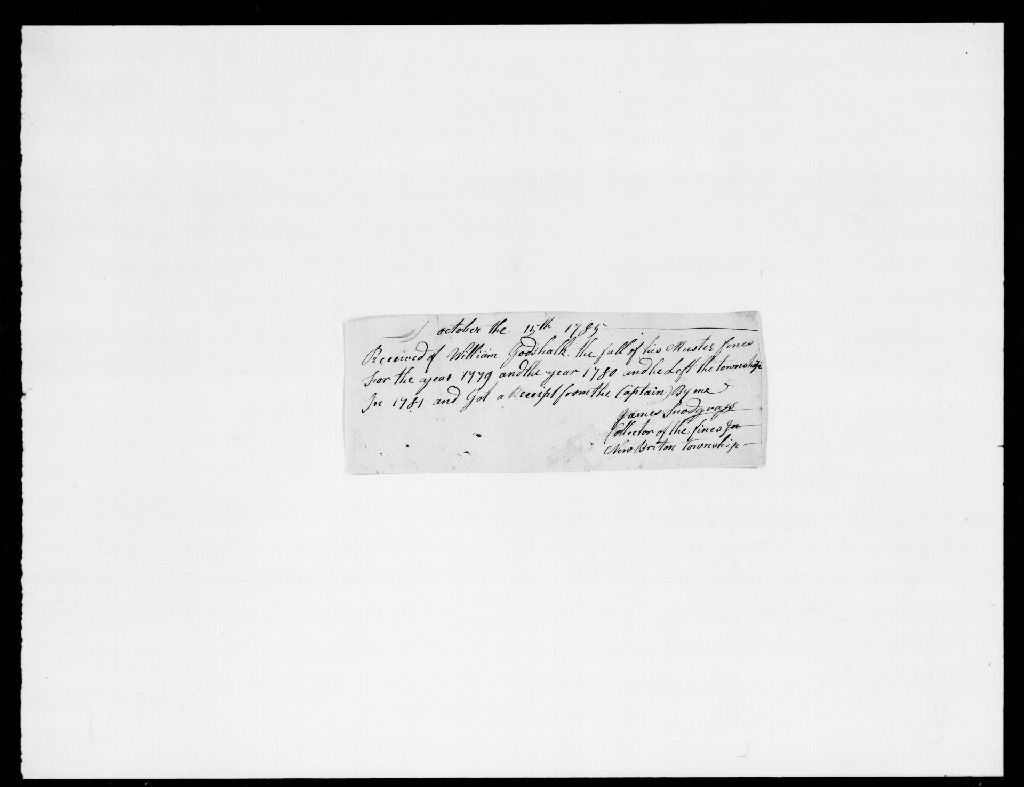 october the 15th 1785
Received of William Godshalk the full of his Muster fines
For the year 1779 and the year 1780 and he Left the township
In 1781 and Got a Receipt from the Captain Byme
James Snodgrass
Collector of the fines In
New Briton township